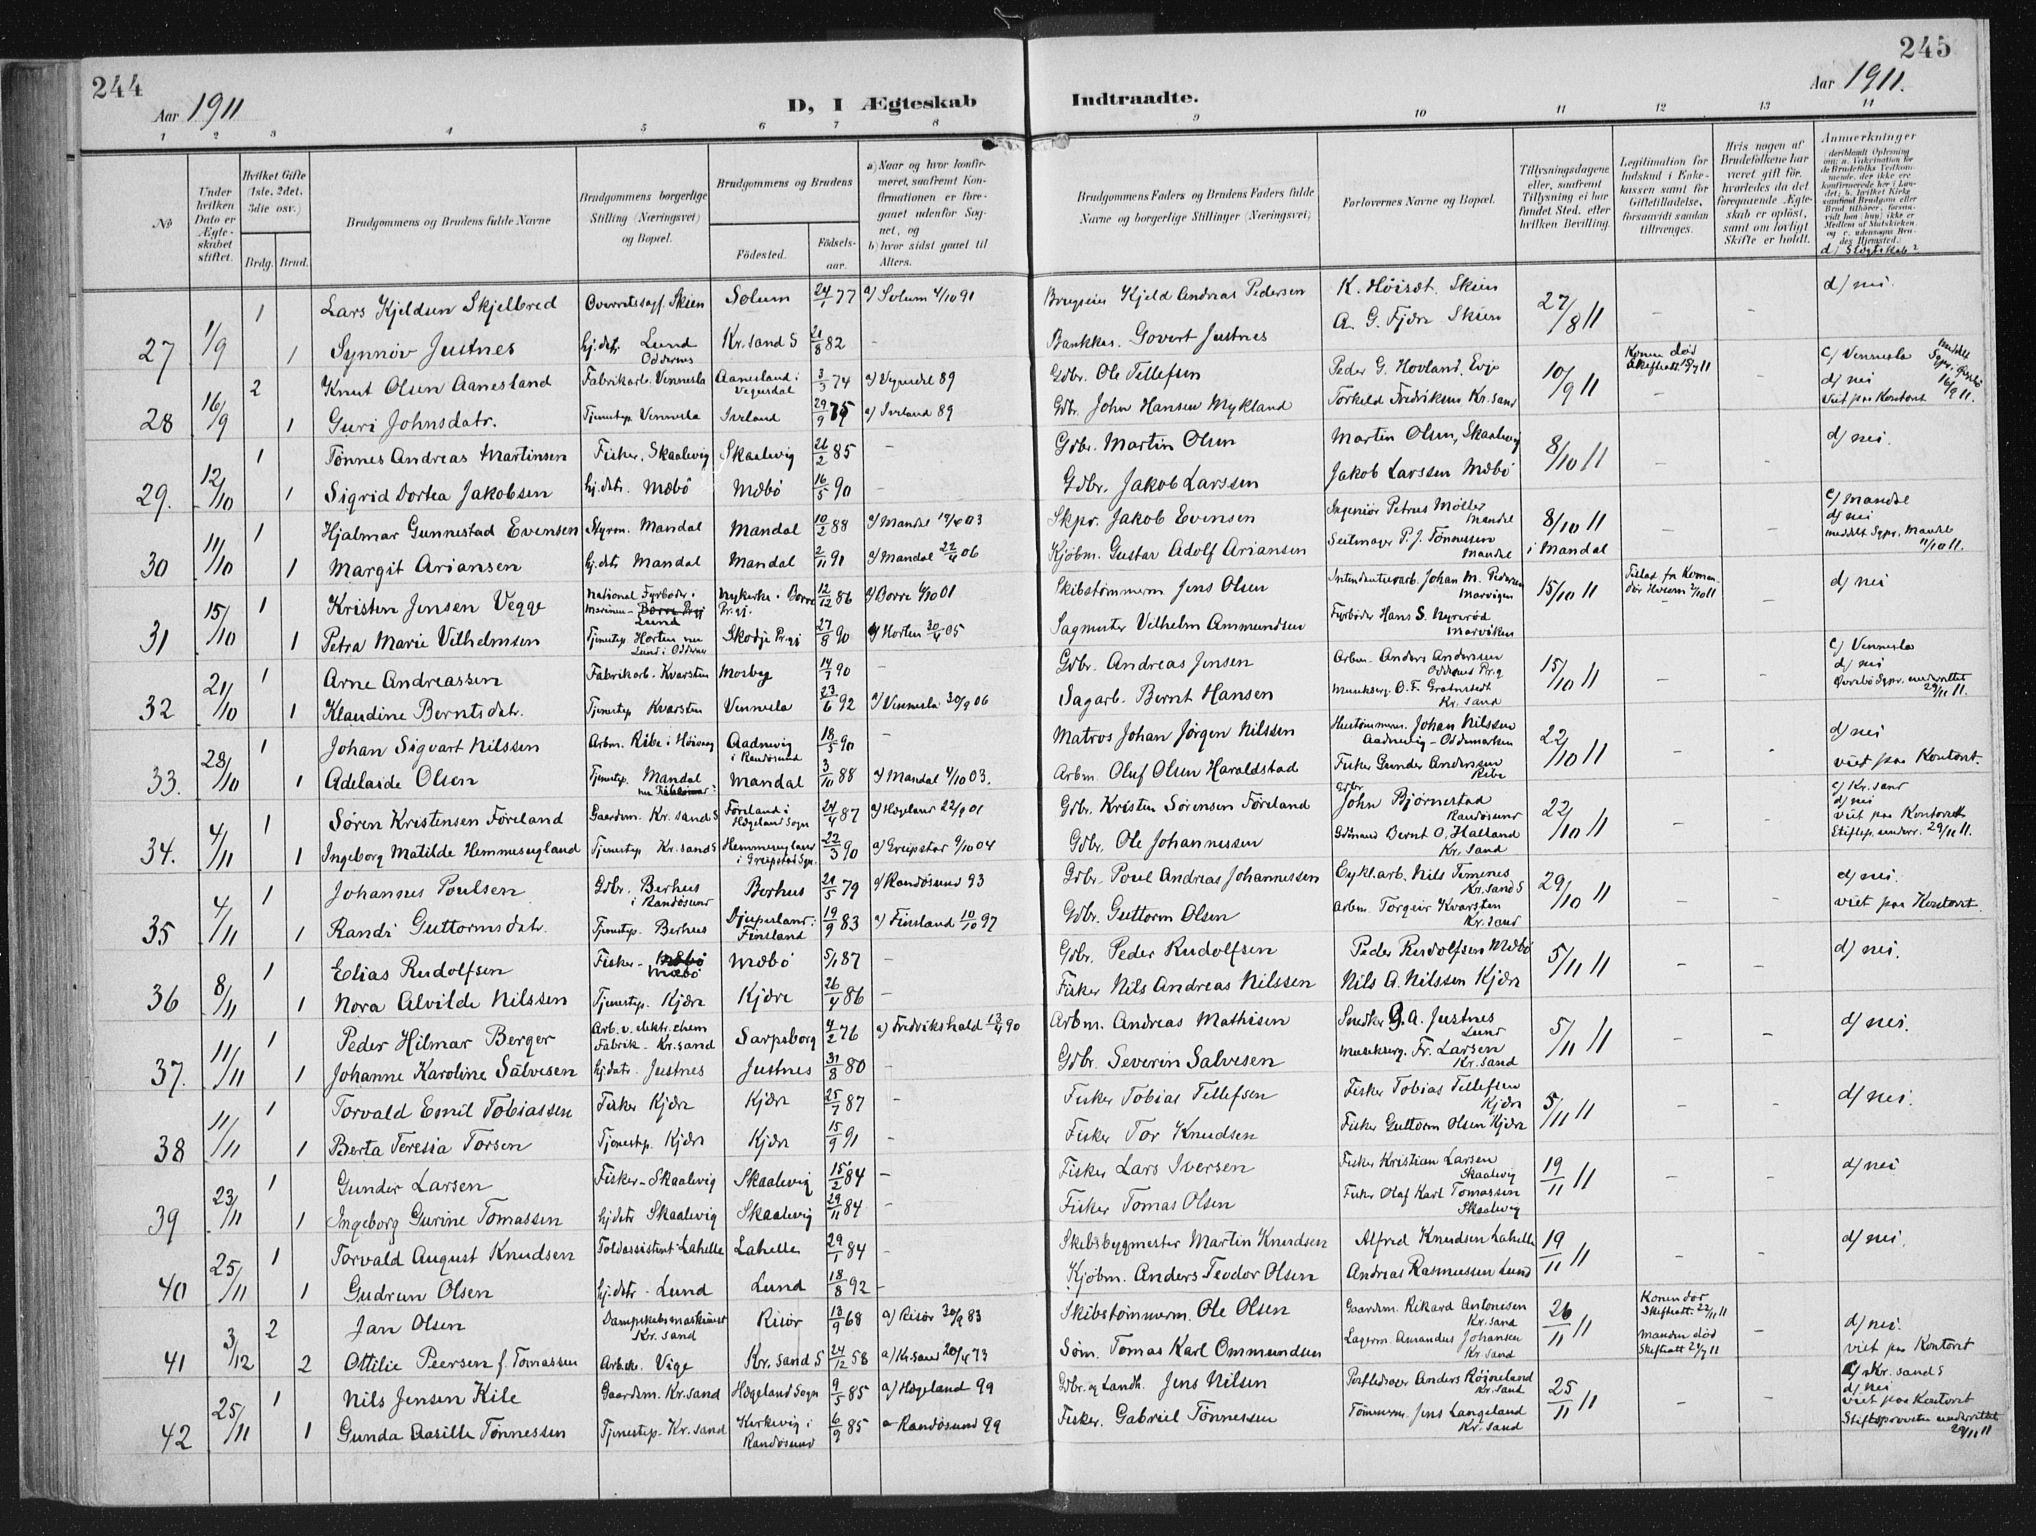 244
Aar 1911
D, I Ægteskab
Indtraadte.
Aar 1911.
245
1 2 3 4 5 6 7 8 9 10 11 12 13 14
No
Under hvilken Dato er Ægteskabet stiftet.
Hvilket Gifte (1ste, 2det, 3die osv.)
Brdg. Brud.
Brudgommens og Brudens fulde Navne
Brudgommens borgerlige Stilling (Næringsvei) og Bopæl.
Brudgommens og Brudens
Fødested.
Fødselsaar.
a) Naar og hvor konfirmeret, saafremt Konfirmationen er foregaaet udenfor Sognet, og
b) hvor sidst gaaet til Alters.
Brudgommens Faders og Brudens Faders fulde Navne og borgerlige Stillinger (Næringsvei)
Forlovernes Navne og Bopæl.
Tillysningsdagene eller, saafremt Tillysning ei har fundet Sted, efter hvilken Bevilling.
Legitimation for Indskud i Enkekassen samt for Giftetilladelse, forsaavidt saadan tiltrænges.
Hvis nogen af Brudefolkene har været gift før, hvorledes da det foregaaende Ægteskab er opløst, samt om lovligt Skifte er holdt.
Anmerkninger
d) Slægtskab?
27 1/9 1 Lars Kjeldsen Skjelbred Overretssagf. Skien Solum 24/1 77 a) Solum 4/10 91 Kjeld Andreas Pedersen K. Höisæt. Skien 27/8 11 d/ nei.
1 Synnöv Justnes hj.dtr. Lund Oddernes Kr.sand S 21/8 82 - Bankkas. Govert Justnes A. G. Fjære Skien
28 16/9 2 Knut Olsen Aanesland Fabrikarb. Vennesla Aanesland i Vegusdal 3/3 74 a) Vegusdal 89 Gdbr. Ole Tellefsen Peder G. Hovland, Evje 10/9 11 Konen död Skifteatt. c/ Vennesla d/ nei
1 Guri Johnsdatr. Tjenestep. Vennesla Iveland 29/9 75 a) Iveland 89 Gdbr. John Hansen Mykland Torkeld Fredriksen Kr.sand viet paa Kontoret
29. 12/10 1 Tönnes Andreas Martinsen Fisker, Skaalevig Skaalevig 26/2 85 - Gdbr. Martin Olsen Martin Olsen, Skaalevig 8/10 11 d/ nei.
1 Sigrid Dortea Jakobsen hj.dtr. Mæbö Mæbö 16/5 90 - Gdbr. Jakob Larssen Jakob Larssen Mæbö
30 11/10 1 Hjalmar Gunnestad Evensen Styrm. Mandal Mandal 10/2 88 a/ Mandal 03 Skpr. Jakob Evensen Ingeniör Petrus Möller Mandal 8/10 11 i Mandal c/ Mandal d/ nei
1 Margit Ariansen hj.dtr Mandal Mandal 2/11 91 a/ Mandal 22/4 06 Kjöbm. Gustav Adolf Ariansen Seilmager P. J. Tönnessen Mandal meddelt Spr. Mandal 11/10 11.
31 15/10 1 Kristen Jensen Vegge National Fyrböder i Marinen - Lund Nykirke i Borre Pr.gj. 12/12 86 a) Borre 01 Skibstömmerm Jens Olsen Intendanturarb. Johan M. Pedersen Marvigen 15/10 11 d/ nei
1 Petra Marie Vilhelmsen Tjenestep Horten nu Lund i Oddernes Skodje Pr.gj 27/8 90 a) Horten 30/4 05 Sagmester Vilhelm Ammundsen Fyrböder Hans S. Nyreröd Marviken
32 21/10 1 Arne Andreassen Fabrikarb. Kvarsten Mosbey 14/7 90 - Gdbr. Andreas Jensen Arbm. Anders Andersen Oddernes Pr.g 15/10 11 c/ Vennesla d/ nei
1 Klaudine Berntsdatr. Tjenestep Kvarsten Vennesla 23/6 92 a) Vennesla 30/9 06 Sagarb. Bernt Hansen Kr. sand
33. 28/10 1 Johan Sigvart Nilssen Arbm. Ribe i Höivaag Aadnevig i Randösund 18/5 90 - Matros Johan Jörgen Nilssen Hustömmerm. Johan Nilssen Aadnevig - Oddemarken 22/10 11 d/ nei
1 Adelaide Olsen Tjenestep. Mandal Mandal 3/10 88 a) Mandal 4/10 03. Arbm. Oluf Olsen Haraldstad Fisker Gunder Andersen Ribe viet paa Kontoret.
34. 4/11 1 Sören Kristensen Föreland Gaardsm. Kr. sand S Föreland i Hægeland Sogn 24/4 87 a) Hægeland 22/9 01 Gdbr. Kristen Sörensen Föreland Gdbr John Björnestad Randösund 22/10 11 c/ Kr. sand d/ nei viet paa Kontoret
1 Ingeborg Matilde Hemmesugland Tjenestep Kr.sand S Hemmesugland i Greipstad Sgn. 22/3 90 a) Greipstad 9/10 04 Gdbr. Ole Johannessen Gdmand Bernt O. Halland Kr. sand 29/11 11.
35 4/11 1 Johannes Poulsen Gdbr. Berhus i Randösund Berhus 21/5 79 a) Randösund 93 Gdbr. Poul Andreas Johannessen Cyklarb. Nils Timenes Kr.sand S 29/10 11 d/ nei.
1 Randi Guttormsdatr. Tjenestep. Berhus Djupesland i Finsland 19/9 83 a) Finsland 10/10 97 Gdbr. Guttorm Olsen Arbm. Torgeir Kvarsten Kr. sand viet paa Kontoret
36 8/11 1 Elias Rudolfsen Fisker - Mæbö Mæbö 5/1 87 - Gdbr. Peder Rudolfsen Peder Rudolfsen Mæbö 5/11 11 d/ nei.
1 Nora Alvilde Nilssen Tjenestep. Kjære Kjære 26/4 86 - Fisker Nils Andreas Nilssen Nils A. Nilssen Kjære
37. 11/11 1 Peder Hilmar Berger Arb. v. elektr. chem Fabrik - Kr.sand Sarpsborg 4/2 76 a) Fredrikshald 13/4 90 Arbm. Andreas Mathisen Snedker G. A. Justnes Lund 5/11 11 d/ nei.
1 Johanne Karoline Salvesen hj.datr. Justnes Justnes 31/8 80 - Gdbr. Severin Salvesen Fr. Larsen Kr. sand
38 11/11 1 Torvald Emil Tobiassen Fisker Kjære Kjære 25/7 87 - Fisker Tobias Tellefsen Fisker Tobias Tellefsen Kjære 5/11 11 d/ nei.
1 Berta Teresia Torsen Tjenestep. Kjære Kjære 15/9 91 - Fisker Tor Knudsen Fisker Guttorm Olsen Kjære
39 23/11 1 Gunder Larsen Fisker - Skaalevig Skaalevig 15/2 84 - Fisker Lars Iversen Fisker Kristian Larsen Skaalevig 19/11 11 d/ nei
1 Ingeborg Gurine Tomassen hj.dtr Skaalevig Skaalevig 29/11 84 - Fisker Tomas Olsen Fisker Olaf Karl Tomassen Skaalevig
40 25/11 1 Torvald August Knudsen Toldassistent Lahelle Lahelle 29/1 84 - Skibsbygmester Martin Knudsen Alfred Knudsen Lahelle 19/11 11 d/ nei.
1 Gudrun Olsen hj.dtr - Lund Lund 18/8 92 - Kjöbm. Anders Teodor Olsen Andreas Rasmussen Lund
41 3/12 2 Jan Olsen Dampskibsmaskinist Kr. sand Risör 13/9 68 a) Risör 30/9 83 Skibstömmerm. Ole Olsen Gaardsm. Rikard Antonesen Kr. sand 26/11 11 Konen död Skifteatt. 22/11 11 d/ nei.
2 Ottilie Peersen f. Tomassen Arb.ske. Vige Kr. sand S 24/12 58 a) Kr.sand 20/4 73 Söm. Tomas Karl Ommundsen Lagerm. Amandus Johansen Kr. sand Manden död Skifteatt 21/7 11 viet paa Kontoret
42 25/11 1 Nils Jensen Kile Gaardsm. Kr.sand Hægeland Sogn 9/5 85 a) Hægeland 99 Gdbr. og Landh. Jens Nilsen Anders Röijneland Kr. sand 25/11 11 c/ Kr. sand S d/ nei viet paa Kontoret
1 Gunda Aasille Tönnessen Tjenestep. Kr. sand Kirkevig i Randösund 6/9 85 a) Randösund 99 Fisker. Gabriel Tönnessen Tömmerm. Jens Langeland Kr. sand Stiftsprovsten underrettet 29/11 11